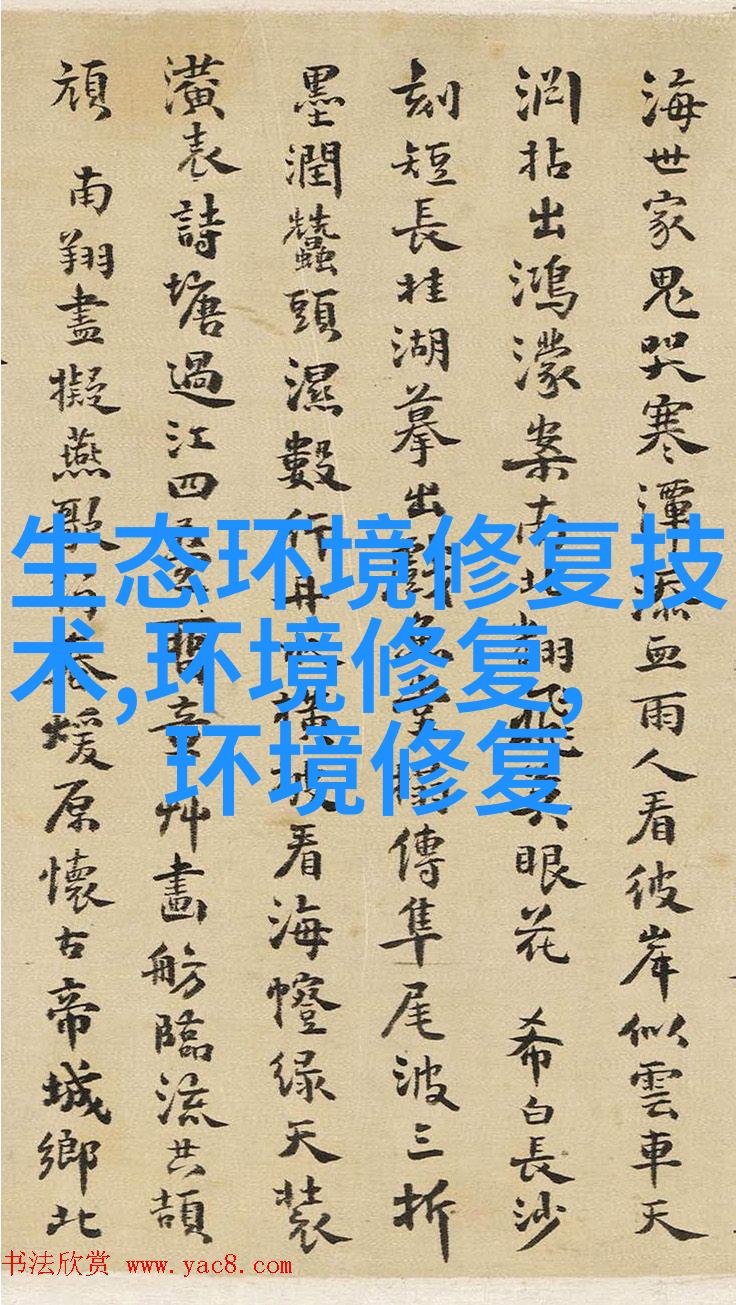 海世家鬼哭寒潭添血雨人看彼岸似雲車天
渊拈出鴻濛案南北翻飛眼花 希白長沙
刻短長桂湖摹出傳隼尾波三折
墨潤蠶頭濕數行丹橫披看海幢緑天裝
潢表詩塘過江四艸畫舫臨流共頡
頏 南翔盡擬燕歌行煖原懷古帝城鄉北
生态环境修复技
术,环境修复,
环境修复
书法欣赏 www.yac8.com